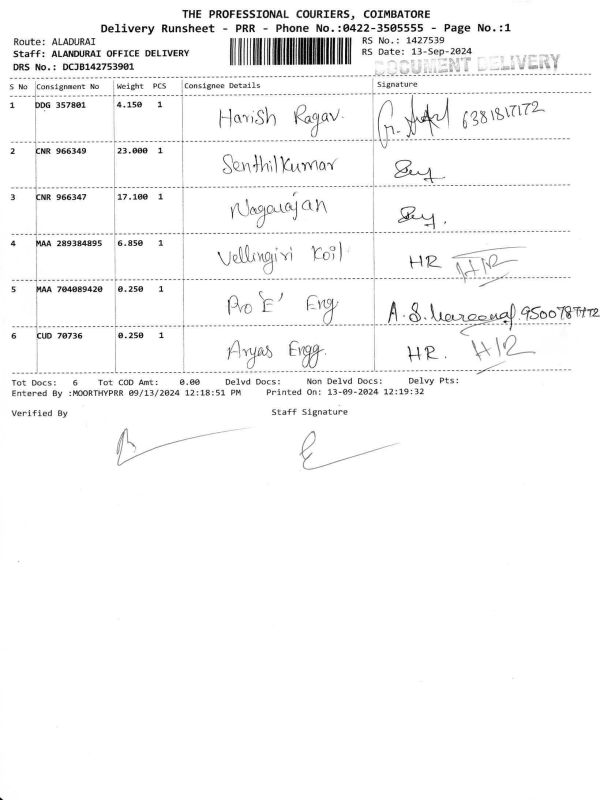 THE PROFESSIONAL COURIERS, COIMBATORE
Delivery Runsheet - PRR - Phone No.:0422-3505555 - Page No.:1
Route: ALADURAI
RS No.: 1427539
Staff: ALANDURAI OFFICE DELIVERY
RS Date: 13-Sep-2024
DRS No.: DCJB142753901
DOCUMENT DELIVERY
S No Consignment No Weight PCS Consignee Details Signature
1 DDG 357801 4.150 1 Harish Ragav. 6381817172
2 CNR 966349 23.000 1 Senthilkumar
3 CNR 966347 17.100 1 Nagarajan
4 MAA 289384895 6.850 1 Vellingiri Koil HR H/R
5 MAA 704089420 0.250 1 Pro 'E' Eng A. S.
6 CUD 70736 0.250 1 Aryas Engg. HR. H/R
Tot Docs: 6 Tot COD Amt: 0.00 Delvd Docs: Non Delvd Docs: Delvy Pts:
Entered By :MOORTHYPRR 09/13/2024 12:18:51 PM Printed On: 13-09-2024 12:19:32
Verified By Staff Signature